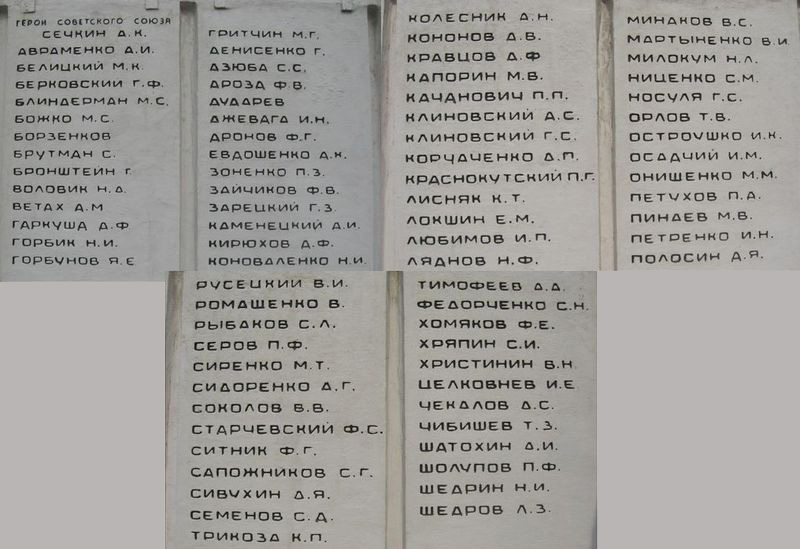 ГЕРОИ СОВЕТСКОГО СОЮЗА
СЕЧКИН Д.К.
АВРАМЕНКО А.И.
БЕЛИЦКИЙ М.К.
БЕРКОВСКИЙ Г.Ф.
БЛИНДЕРМАН М.С.
БОЖКО М.С.
БОРЗЕНКОВ
БРУТМАН С.
БРОНШТЕЙН Г.
ВОЛОВИК Н.Д.
ВЕТАХ Д.М
ГАРКУША Д.Ф
ГОРБИК Н.И.
ГОРБУНОВ Я.Е
ГРИТЧИН М.Г.
ДЕНИСЕНКО Г.
ДЗЮБА С.С.
ДРОЗД Ф.В.
ДУДАРЕВ
ДЖЕВАГА И.Н.
ДРОНОВ Ф.Г.
ЕВДОШЕНКО Д.К.
ЗОНЕНКО П.З.
ЗАЙЧИКОВ Ф.В.
ЗАРЕЦКИЙ Г.З.
КАМЕНЕЦКИЙ Д.И.
КИРЮХОВ Д.Ф.
КОНОВАЛЕНКО Н.И.
КОЛЕСНИК Д.Н.
КОНОНОВ Д.В.
КРАВЦОВ Д.Ф
КАПОРИН М.В.
КАЧАНОВИЧ П.П.
КЛИНОВСКИЙ Д.С.
КЛИНОВСКИЙ Г.С.
КОРЧАЧЕНКО Д.П.
КРАСНОКУТСКИЙ П.Г.
ЛИСНЯК К.Т.
ЛОКШИН Е.М.
ЛЮБИМОВ И.П.
ЛЯДНОВ Н.Ф.
МИНАКОВ В.С.
МАРТЫНЕНКО В.И
МИЛОКУМ Н.Л.
НИЦЕНКО С.М.
НОСУЛЯ Г.С.
ОРЛОВ Т.В.
ОСТРОУШКО И.К.
ОСАДЧИЙ И.М.
ОНИЩЕНКО М.М.
ПЕТУХОВ П.Д.
ПИНАЕВ М.В.
ПЕТРЕНКО И.Н.
ПОЛОСИН Д.Я.
РУСЕЦКИЙ В.И.
РОМАШЕНКО В.
РЫБАКОВ С.Л.
СЕРОВ П.Ф.
СИРЕНКО М.Т.
СИДОРЕНКО Д.Г.
СОКОЛОВ В.В.
СТАРЧЕВСКИЙ Ф.С.
СИТНИК Ф.Г.
САПОЖНИКОВ С.Г.
СИВУХИН Д.Я.
СЕМЕНОВ С.Д.
ТРИКОЗА К.П.
ТИМОФЕЕВ Д.Д.
ФЕДОРЧЕНКО С.Н.
ХОМЯКОВ Ф.Е.
ХРЯПИН С.И.
ХРИСТИНИН В.Н.
ЦЕЛКОВНЕВ И.Е
ЧЕКАЛОВ Д.С.
ЧИБИШЕВ Т.З.
ШАТОХИН Д.И.
ШОЛУПОВ П.Ф.
ЩЕДРИН Н.И.
ЩЕДРОВ Л.З.